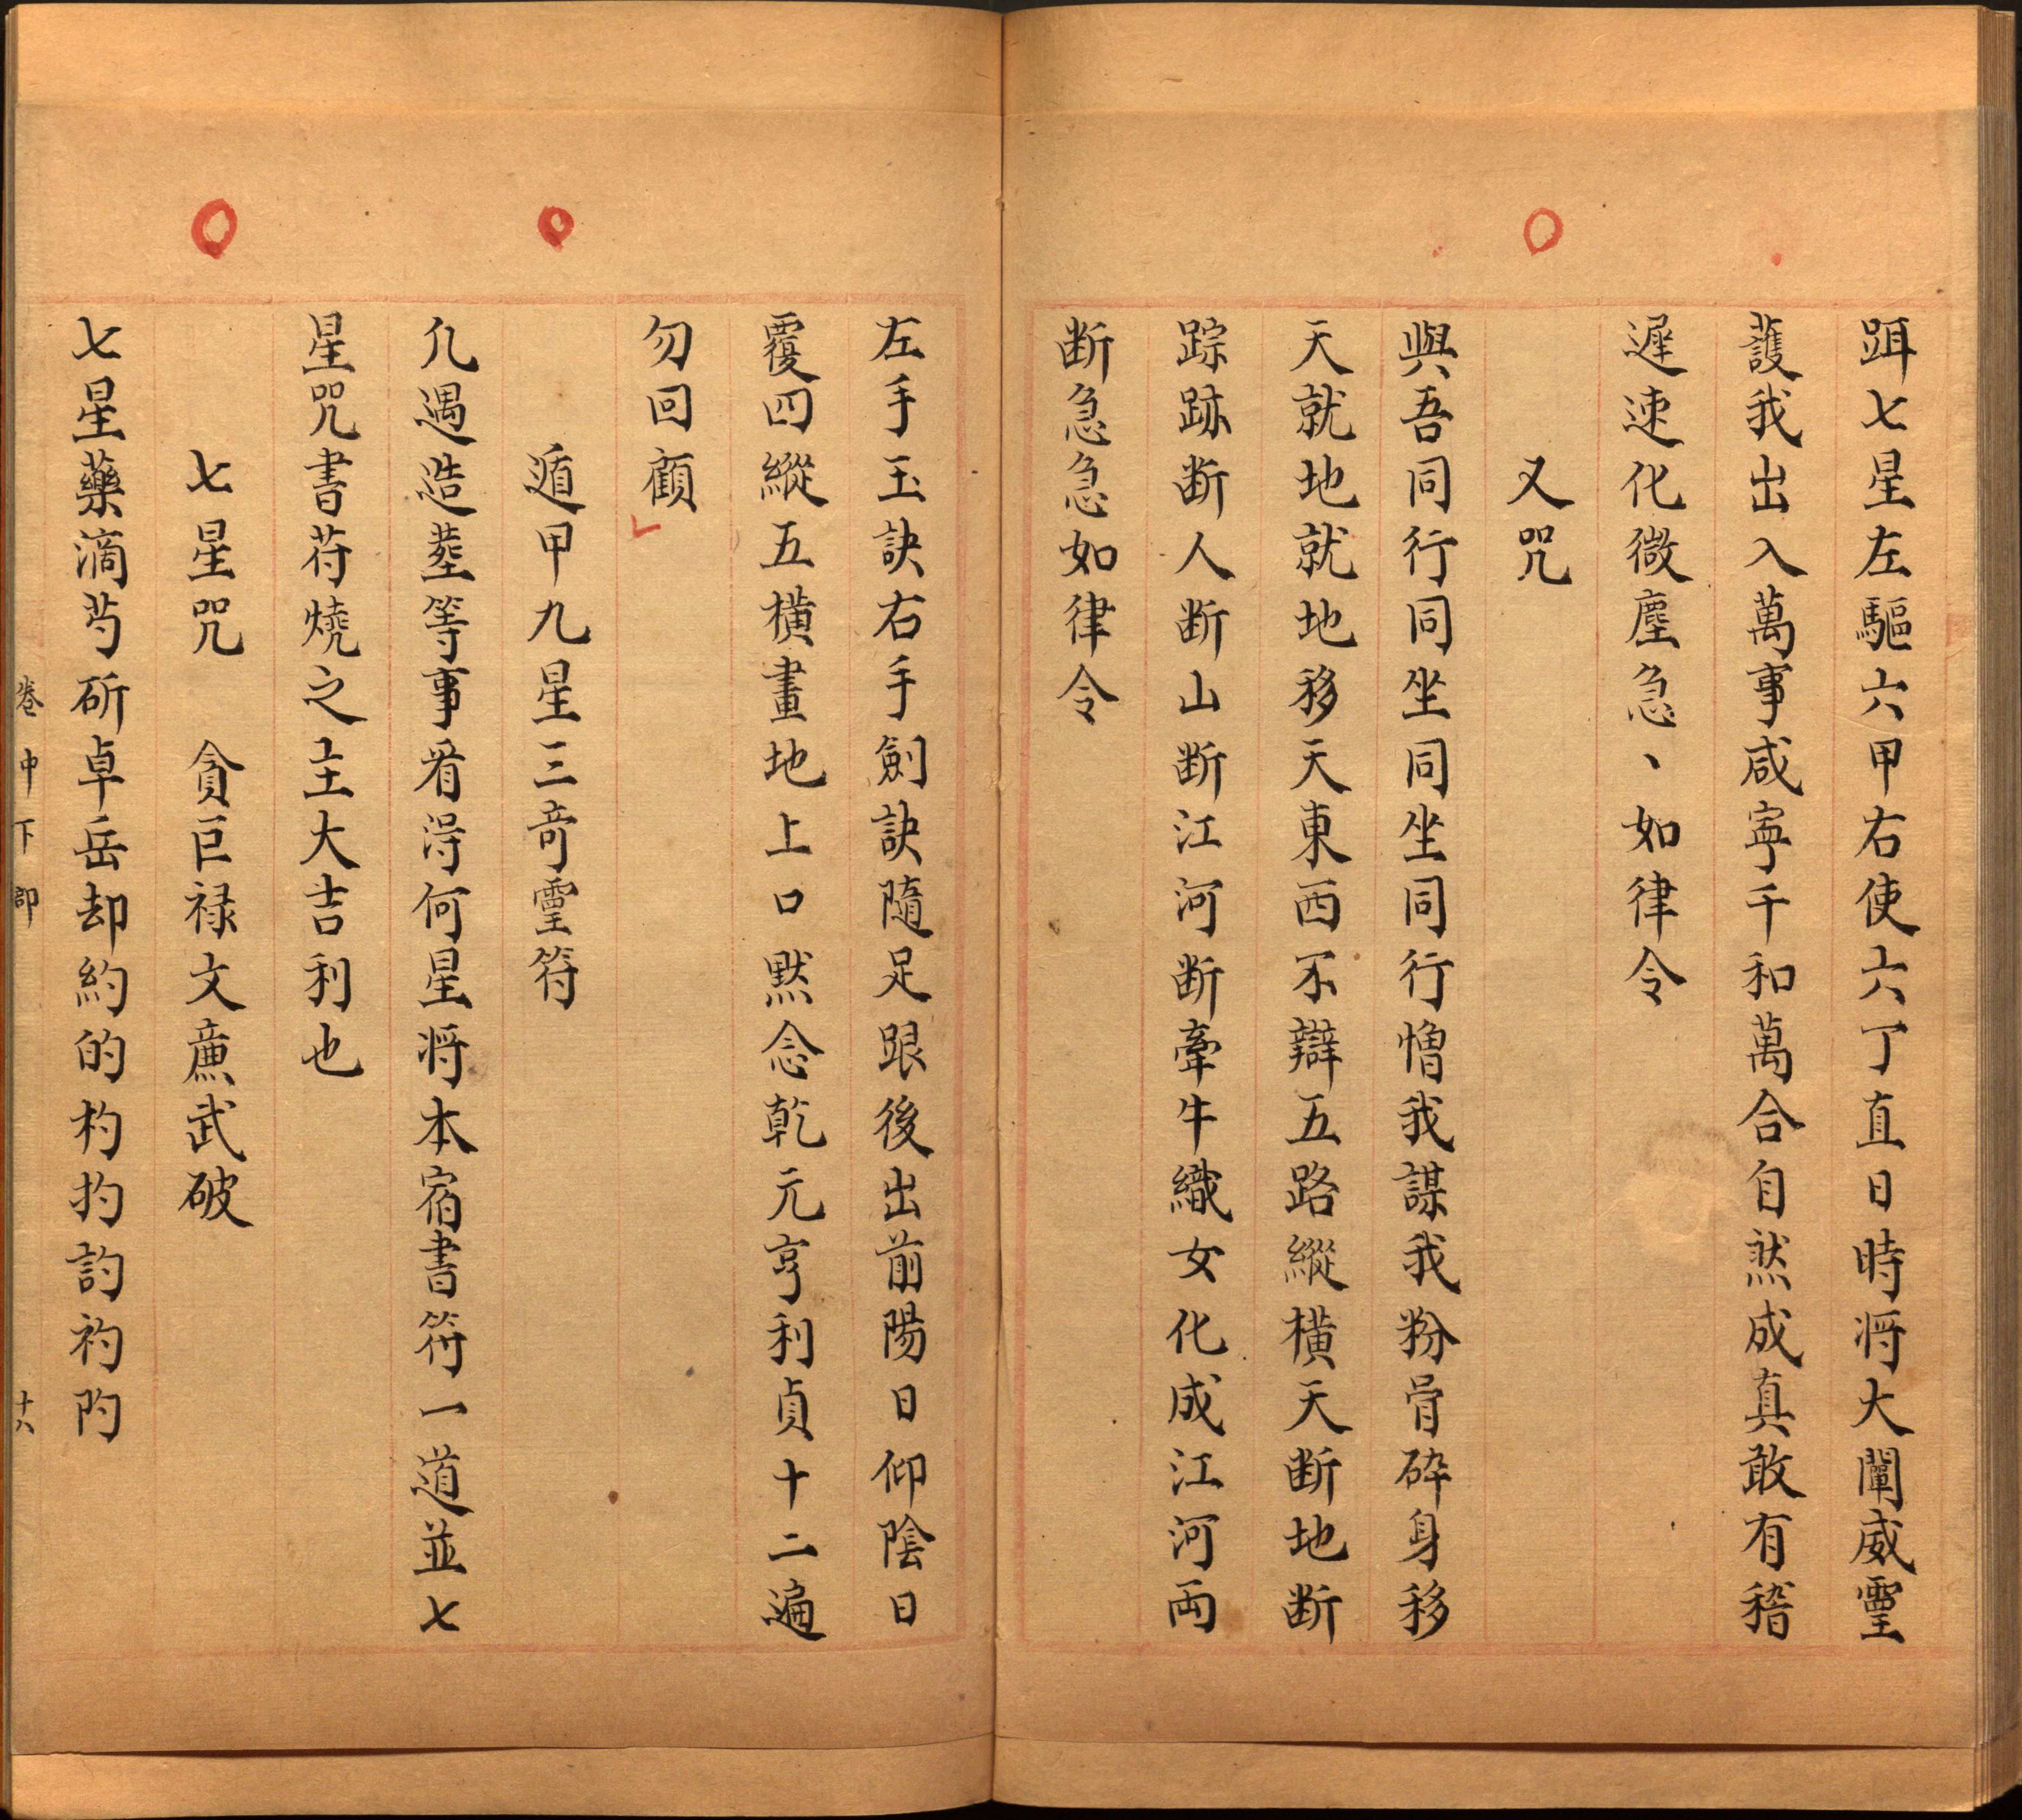 跙七星左驅六甲右使六丁直日時将大闡威霊
䕶我出入萬事咸寧千和萬合自然成真敢有稽
遲速化微塵急丶如律令
又咒
與吾同行同坐同坐同行憎我謀我粉骨碎身移
天就地就地移天東西不辯五路縱橫天断地断
踪跡断人断山断江河断牽牛織女化成江河両
断急急如律令
左手玉訣右手劍訣隨足跟後出前陽日仰陰日
覆四縱五橫畫地上口黙念乾元亨利貞十二遍
勿回顧
遁甲九星三竒霊符
凢遇造塟等事看淂何星将本宿書符一道並七
星咒書苻燒之主大吉利也
七星咒 貪巨禄文亷武破
七星藥滴芍斫卓岳却約的杓扚訋礿䦹
卷中下卽 十六